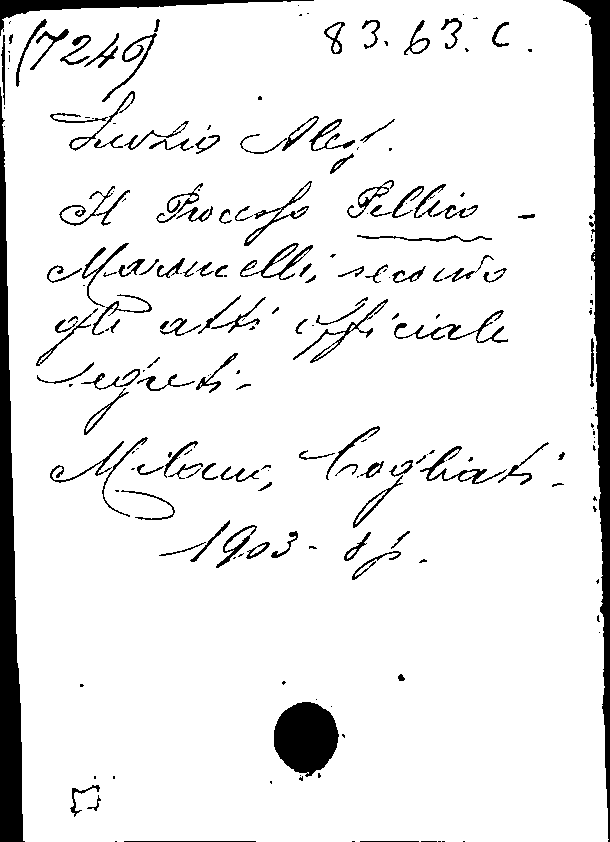 (7246) 83.63.C.
Luzio Aless.
Il Processo Pellico -
Maroncelli, secondo
gli atti officiali
segreti.
Milano, Cogliati.
1903.